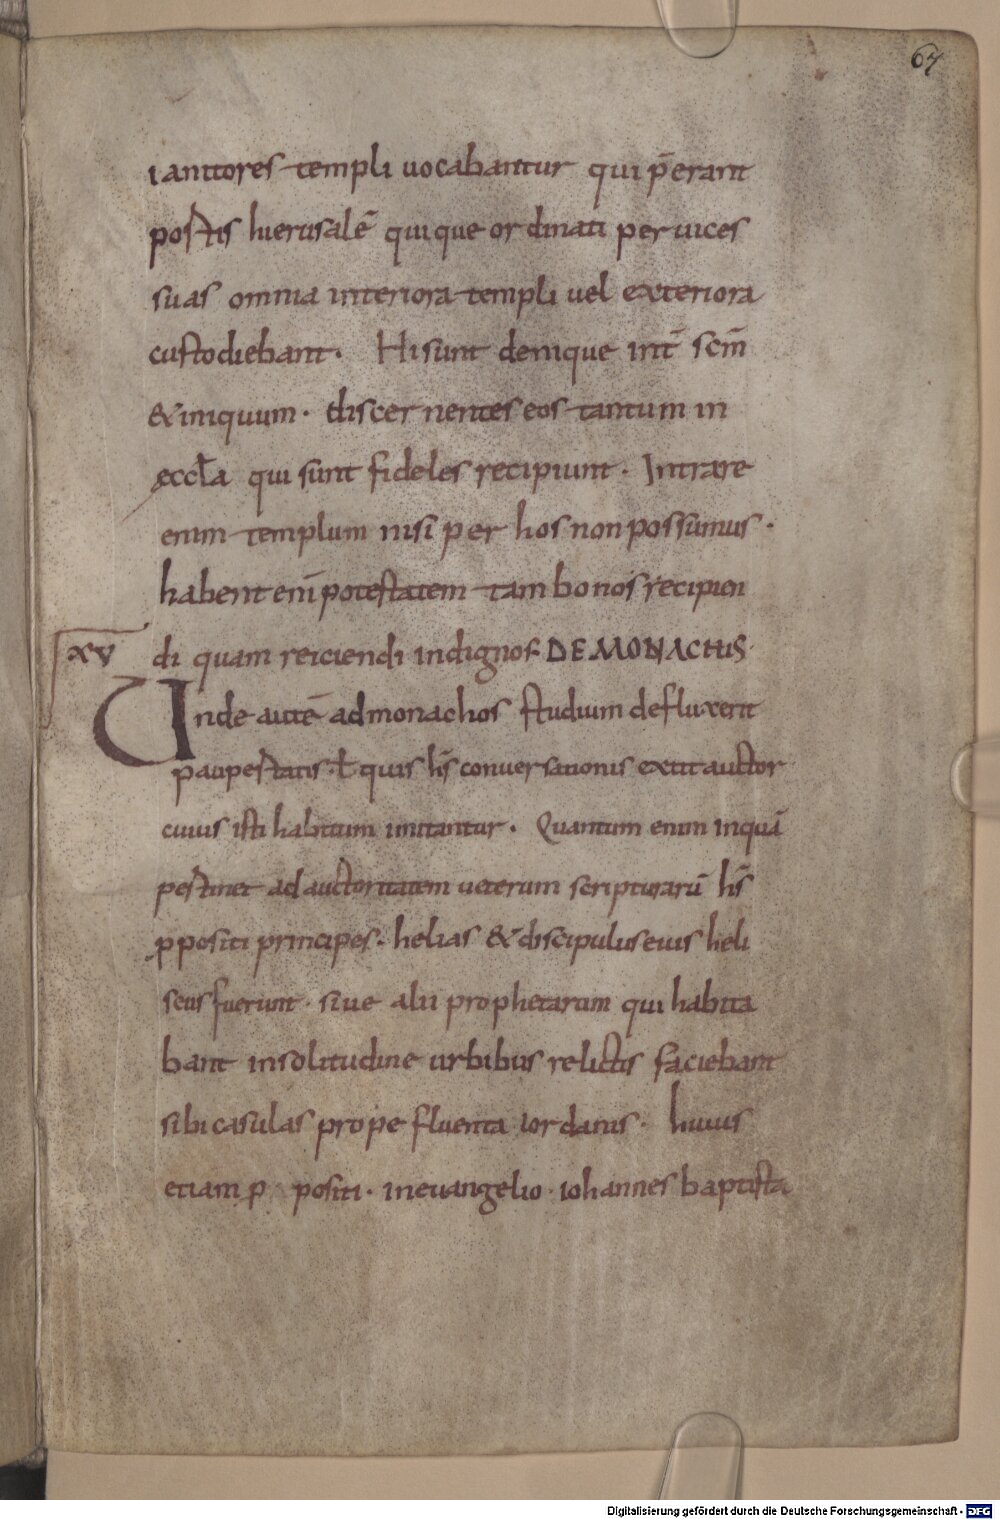 67
ianitores templi uocabantur qui p̄erant
postis hierusalē quique ordinati per uices
suas omnia interiora templi uel exteriora
custodiebant. Hi sunt denique int̄ sc̄m
&iniquum. discernentes eos tantum in
eccl̄a qui sunt fideles recipiunt. Intrare
enim templum nisi per hos non possumus.
habent eni͞ potestatem tam bonos recipien
di quam reiciendi indignos DE MONACHIS
xv
Unde autē ad monachos studium defluxerit
paupertatis. ł quis hs̄ conuersationis extit auctor
cuius isti habitum imitantur. Quantum enim inquā
pertinet ad auctoritatem ueterum scripturarū hs̄
ppositi principes. helias & discipulus eius heli
seus fuerunt. siue alii prophetarum qui habita
bant in solitudine urbibus relictis faciebant
sibi casulas prope fluenta iordanis. huius
etiam p positi. in euangelio. iohannes baptista
Digitalisierung gefördert durch die Deutsche Forschungsgemeinschaft - DFG